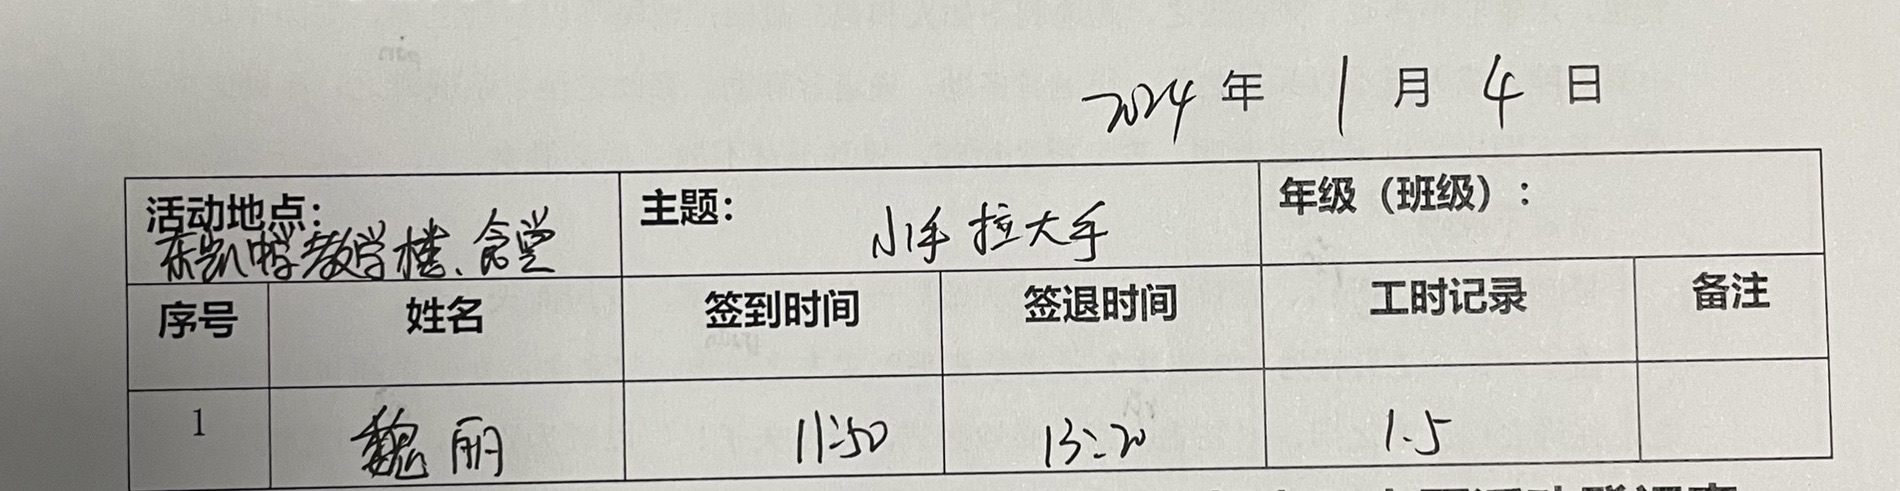 2024 年 1 月 4 日
活动地点: 主题: 小手拉大手 年级（班级）:
东凯中学教学楼、食堂
序号 姓名 签到时间 签退时间 工时记录 备注
1 魏丽 11:50 13:20 1.5